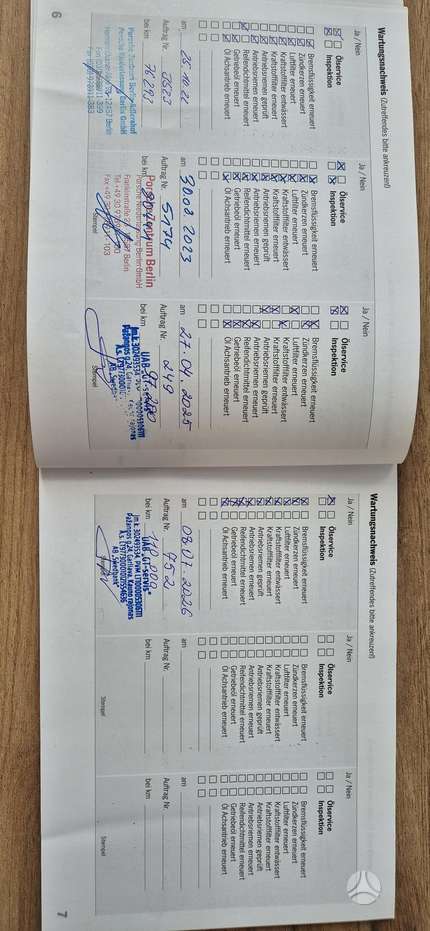 Wartungsnachweis (Zutreffendes bitte ankreuzen)
Ja / Nein
Ölservice
Inspektion
Bremsflüssigkeit erneuert
Zündkerzen erneuert
Luftfilter erneuert
Kraftstofffilter entwässert
Kraftstofffilter erneuert
Antriebsriemen geprüft
Antriebsriemen erneuert
Reifendichtmittel erneuert
Getriebeöl erneuert
Öl Achsantrieb erneuert
am 25.10.22
Auftrag Nr.
bei km 76293
Ja / Nein
Ölservice
Inspektion
Bremsflüssigkeit erneuert
Zündkerzen erneuert
Luftfilter erneuert
Kraftstofffilter entwässert
Kraftstofffilter erneuert
Antriebsriemen geprüft
Antriebsriemen erneuert
Reifendichtmittel erneuert
Getriebeöl erneuert
Öl Achsantrieb erneuert
am 30.08.2023
Auftrag Nr. 51174
bei km
Stempel
Ja / Nein
Ölservice
Inspektion
Bremsflüssigkeit erneuert
Zündkerzen erneuert
Luftfilter erneuert
Kraftstofffilter entwässert
Kraftstofffilter erneuert
Antriebsriemen geprüft
Antriebsriemen erneuert
Reifendichtmittel erneuert
Getriebeöl erneuert
Öl Achsantrieb erneuert
am
Auftrag Nr. 249
bei km
Stempel
6
Wartungsnachweis (Zutreffendes bitte ankreuzen)
Ja / Nein
Ölservice
Inspektion
Bremsflüssigkeit erneuert
Zündkerzen erneuert
Luftfilter erneuert
Kraftstofffilter entwässert
Kraftstofffilter erneuert
Antriebsriemen geprüft
Antriebsriemen erneuert
Reifendichtmittel erneuert
Getriebeöl erneuert
Öl Achsantrieb erneuert
am 08.01.2026
Auftrag Nr. 952
bei km
Ja / Nein
Ölservice
Inspektion
Bremsflüssigkeit erneuert
Zündkerzen erneuert
Luftfilter erneuert
Kraftstofffilter entwässert
Kraftstofffilter erneuert
Antriebsriemen geprüft
Antriebsriemen erneuert
Reifendichtmittel erneuert
Getriebeöl erneuert
Öl Achsantrieb erneuert
am
Auftrag Nr.
bei km
Stempel
Ja / Nein
Ölservice
Inspektion
Bremsflüssigkeit erneuert
Zündkerzen erneuert
Luftfilter erneuert
Kraftstofffilter entwässert
Kraftstofffilter erneuert
Antriebsriemen geprüft
Antriebsriemen erneuert
Reifendichtmittel erneuert
Getriebeöl erneuert
Öl Achsantrieb erneuert
am
Auftrag Nr.
bei km
Stempel
7